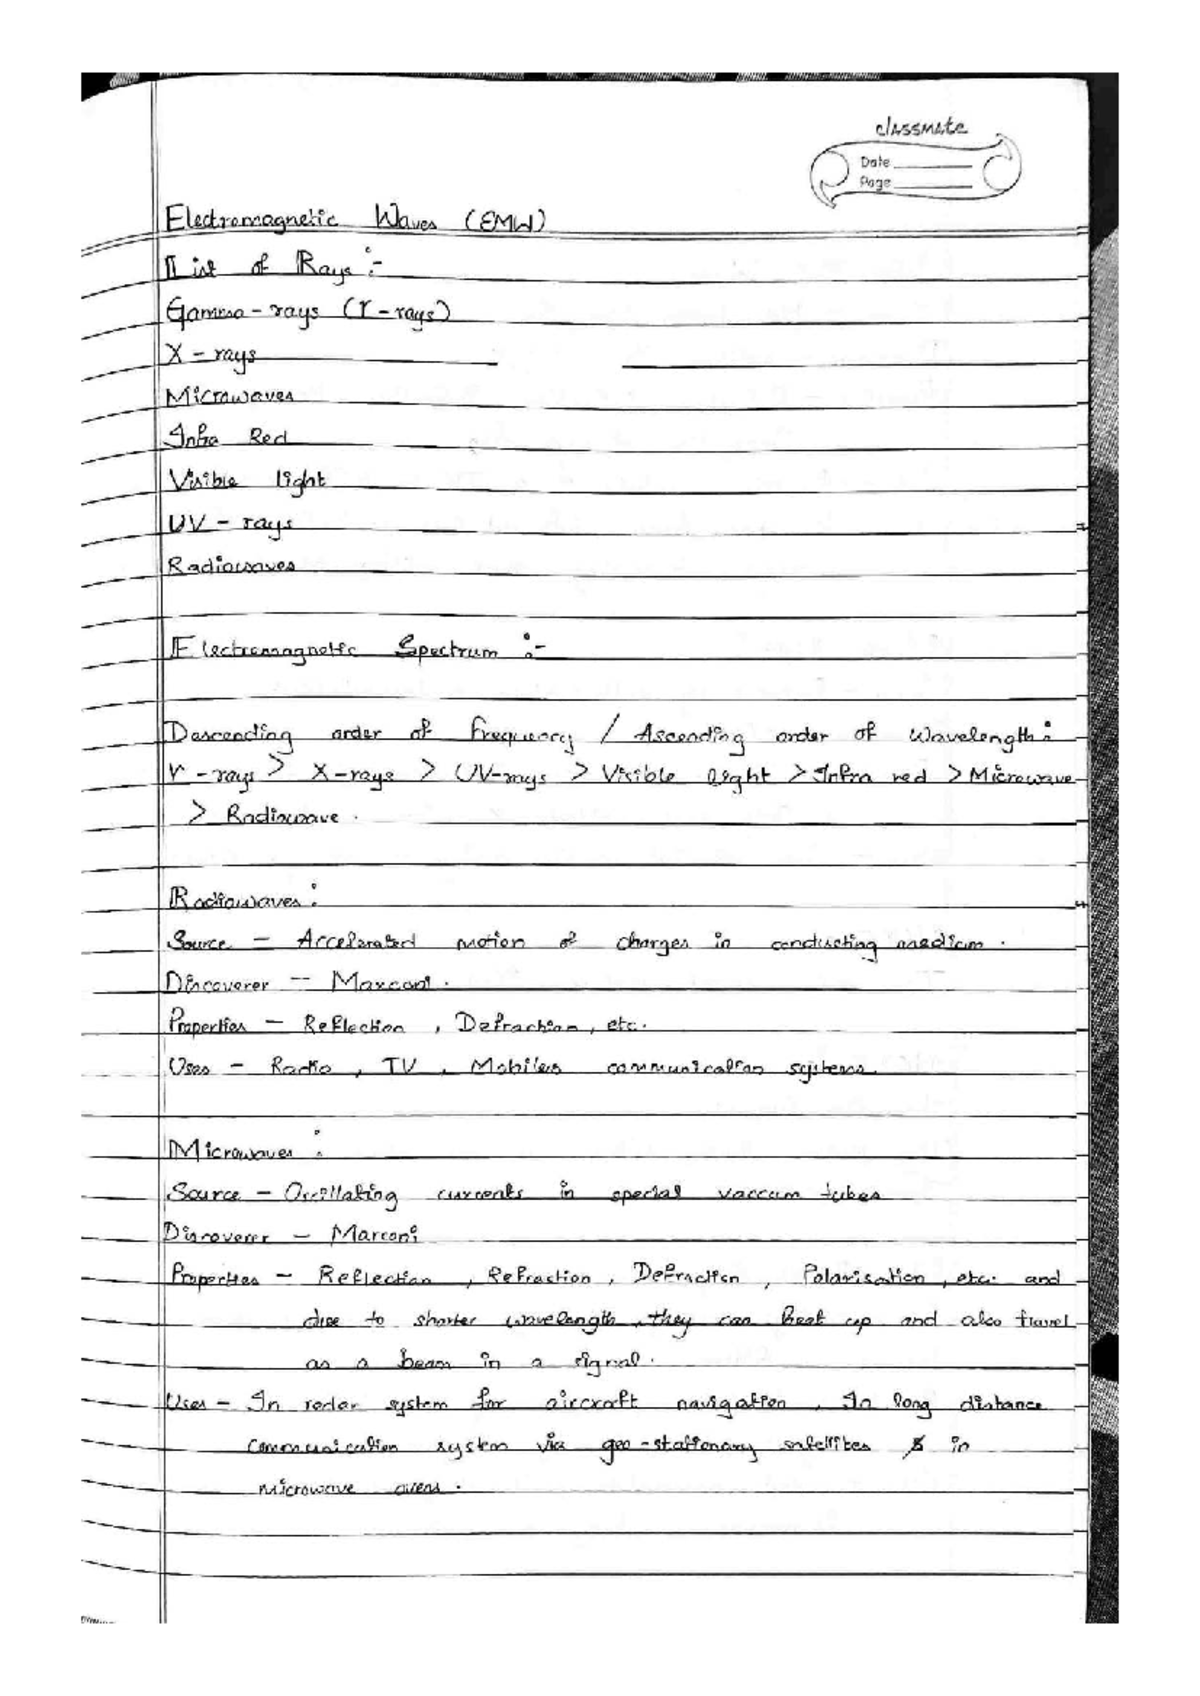 classmate
Date
Page
Electromagnetic Waves (EMW)
List of Rays :-
Gamma - rays (r - rays)
X - rays
Microwaves
Infra Red
Visible light
UV - rays
Radiowaves
Electromagnetic Spectrum :-
Descending order of frequency / Ascending order of Wavelength :
r - rays > X - rays > UV-rays > Visible light > Infra red > Microwave
> Radiowave .
Radiowaves :
Source - Accelerated motion of charges in conducting medium .
Discoverer -- Marconi .
Properties - Reflection , Defraction, etc.
Uses - Radio , TV , Mobiles communication systems.
Microwaves :
Source - Oscillating currents in special vaccum tubes
Discoverer - Marconi
Properties - Reflection , Refraction , Defraction , Polarisation , etc. and
due to shorter wavelength , they can heat up and also travel
as a beam in a signal .
Uses - In radar system for aircraft navigation , In long distance
communication system via geo - stationary satellites & in
microwave ovens .